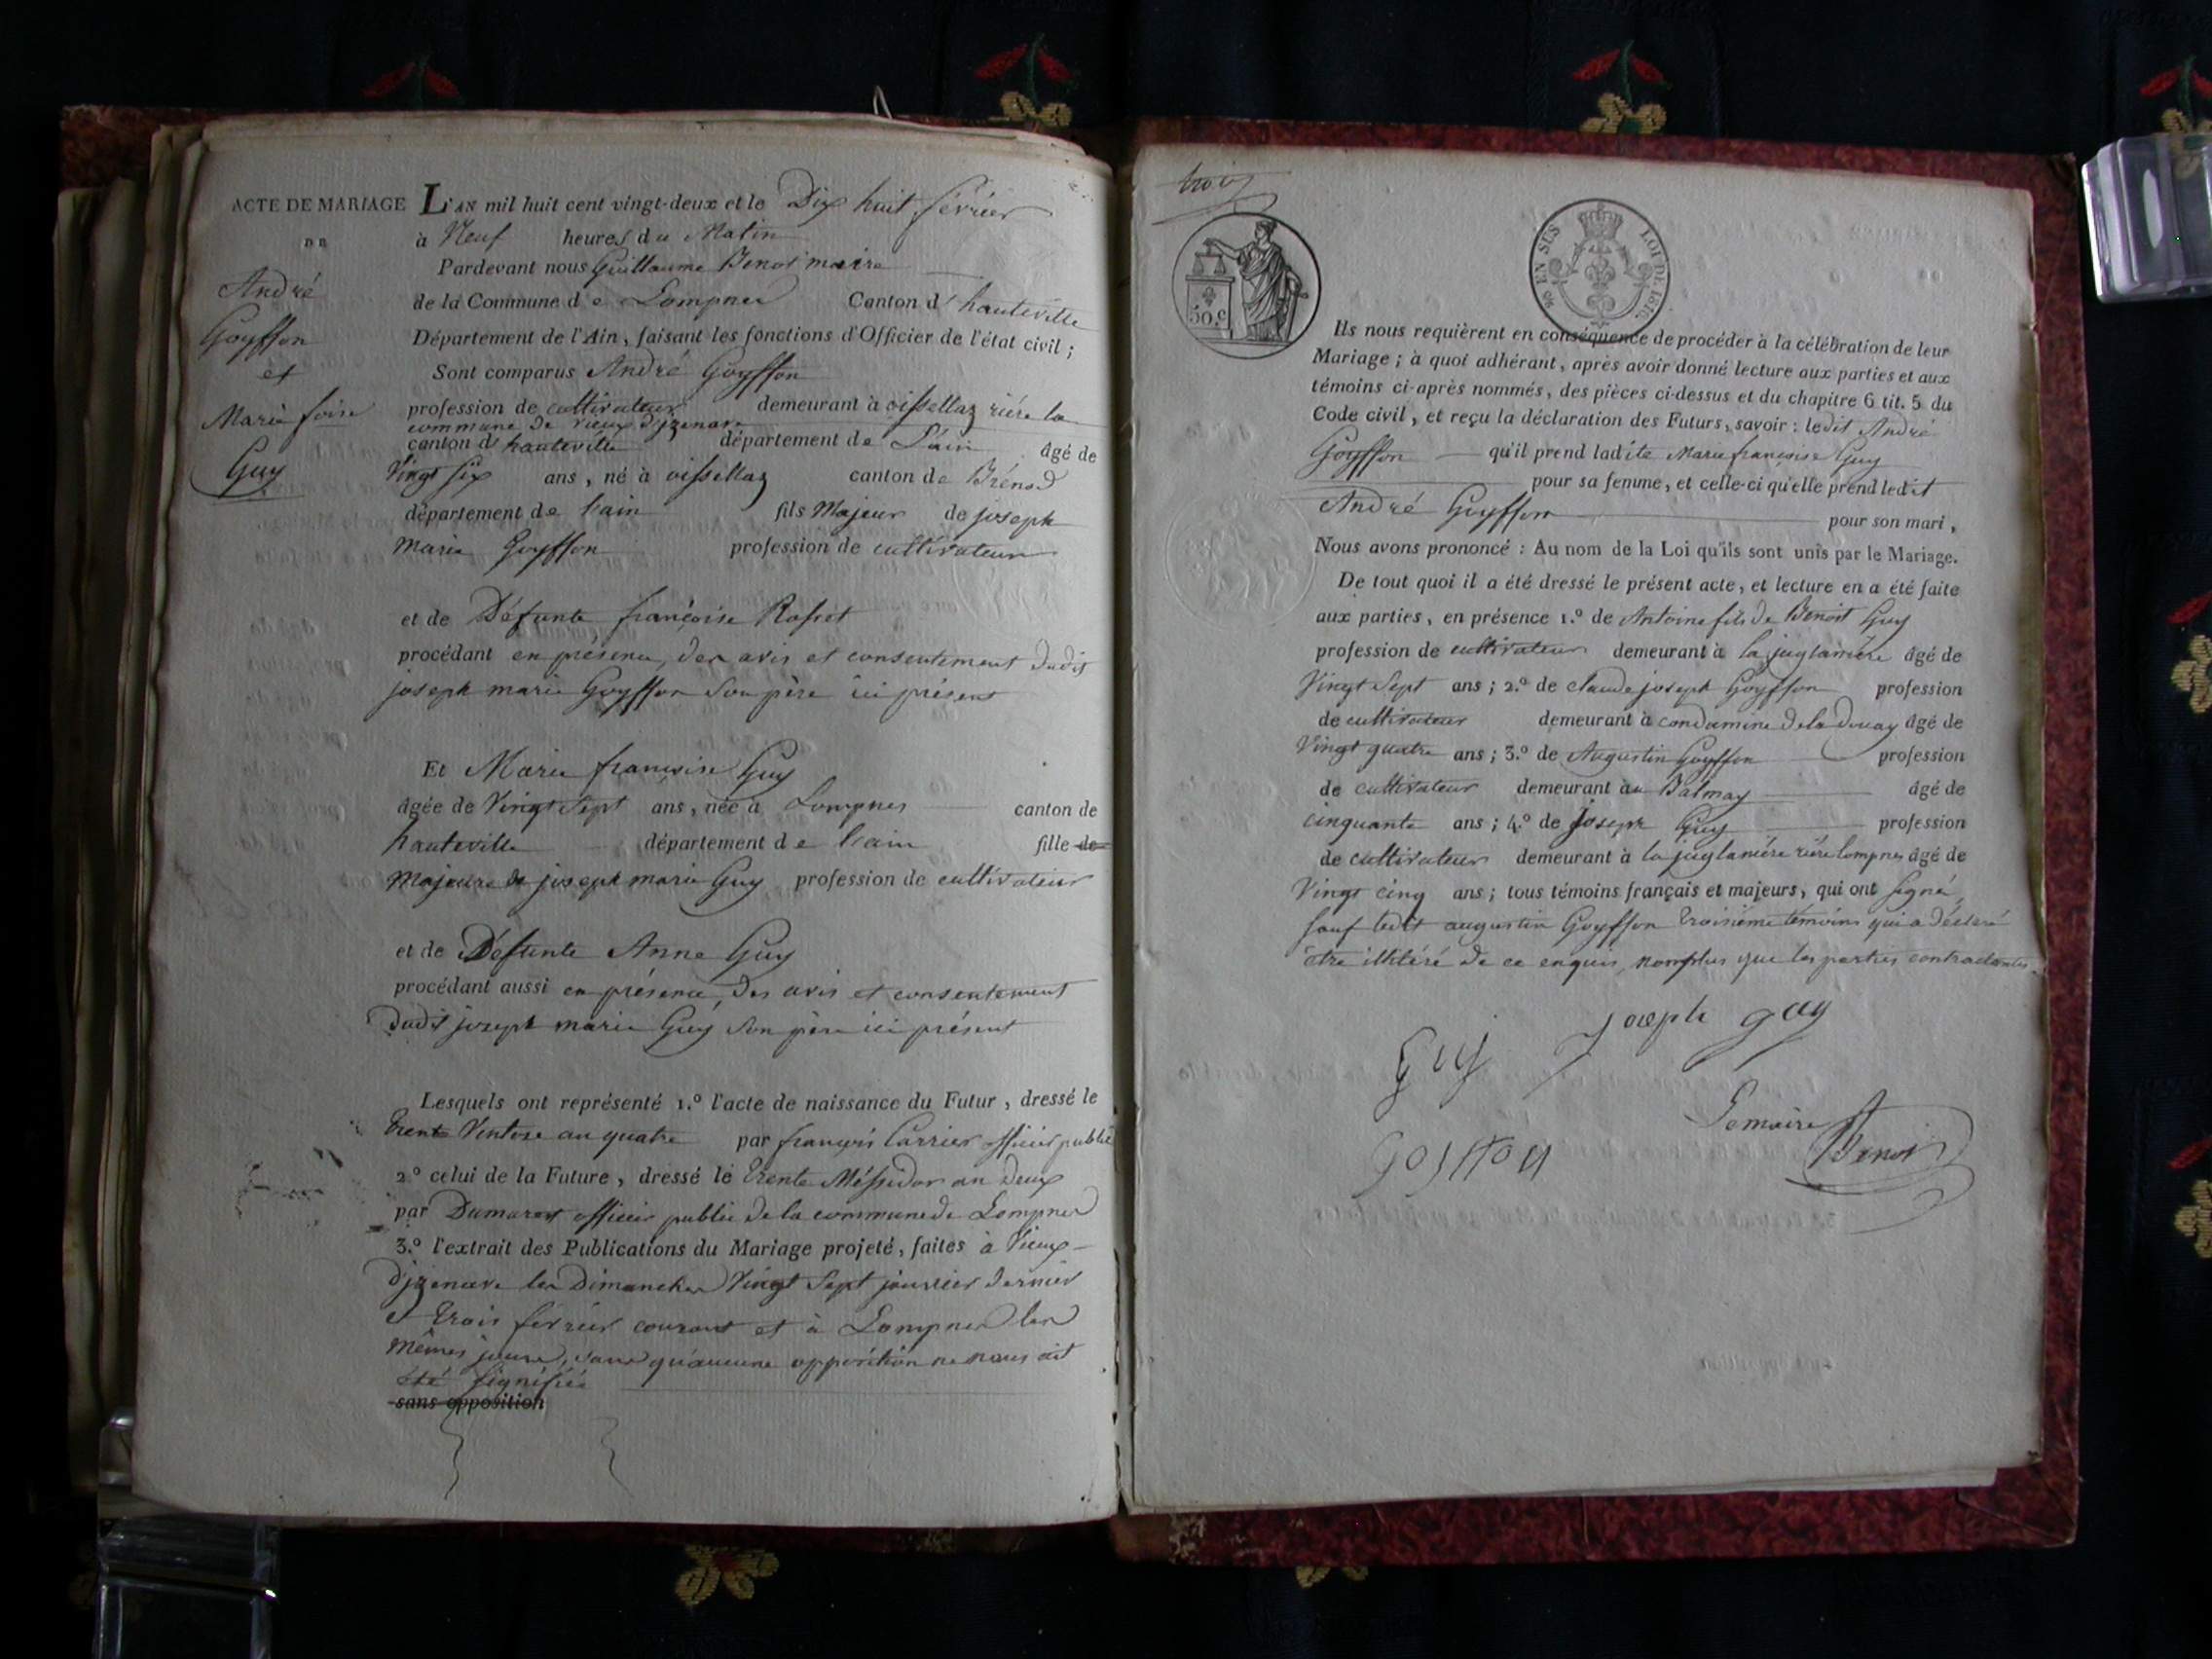 ACTE DE MARIAGE
DE
André
Goyffon
et
Marie foise
Guy
L'AN mil huit cent vingt-deux et le Dix huit février
à Neuf heures du Matin
Pardevant nous Guillaume Benoit maire
de la Commune de Lompnes Canton d'hauteville
Département de l'Ain, faisant les fonctions d'Officier de l'état civil ;
Sont comparus André Goyffon
profession de cultivateur demeurant à oissellaz rière la
commune de vieux d'izenave
canton d'hauteville département de L'ain âgé de
Vingt six ans, né à oissellaz canton de Brénod
département de l'ain fils Majeur de joseph
marie Goyffon profession de cultivateur
et de Défunte françoise
procédant en présence, des avis et consentement dudit
joseph marie Goyffon son père ici présent
Et Marie françoise Guy
âgée de Vingt Sept ans, née à Lompnes canton de
hauteville département de l'ain fille de
Majeure de joseph marie Guy profession de cultivateur
et de Défunte Anne Guy
procédant aussi en présence, des avis et consentement
dudit joseph marie Guy son père ici présent
Lesquels ont représenté 1.º l'acte de naissance du Futur, dressé le
trente Ventose an quatre par françois Carrier officier public
2.º celui de la Future, dressé le trente Méssidor an Deux
par Dumarest officier public de la commune de Lompnes
3.º l'extrait des Publications du Mariage projeté, faites à Vieux-
d'izenave les Dimanches Vingt Sept janvier dernier
et trois février courant et à Lompnes les
mêmes jours, sans qu'aucune opposition ne nous ait
été signifiée
sans opposition
trois
50.c
EN SUS LOI DE 1816.
Ils nous requièrent en conséquence de procéder à la célébration de leur
Mariage ; à quoi adhérant, après avoir donné lecture aux parties et aux
témoins ci-après nommés, des pièces ci-dessus et du chapitre 6 tit. 5 du
Code civil, et reçu la déclaration des Futurs, savoir : ledit André
Goyffon qu'il prend ladite Marie françoise Guy
pour sa femme, et celle-ci qu'elle prend ledit
André Goyffon pour son mari,
Nous avons prononcé : Au nom de la Loi qu'ils sont unis par le Mariage.
De tout quoi il a été dressé le présent acte, et lecture en a été faite
aux parties, en présence 1.º de Antoine fils de Benoit Guy
profession de cultivateur demeurant à la juglanière âgé de
Vingt Sept ans ; 2.º de claude joseph Goyffon profession
de cultivateur demeurant à condamine de la Douay âgé de
Vingt quatre ans ; 3.º de Augustin Goyffon profession
de cultivateur demeurant au Balmay âgé de
cinquante ans ; 4.º de joseph Guy profession
de cultivateur demeurant à la juglanière rière Lompnes âgé de
Vingt cinq ans ; tous témoins français et majeurs, qui ont signé,
sauf ledit augustin Goyffon troisième témoins qui a déclaré
être illitéré de ce enquis, nomplus que les parties contractantes.
Guy joseph guy
Le maire
Benoit
goiffon